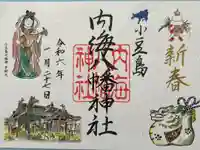 小豆島
新春
内海八幡神社
内海
神社
令和六年
一月二十七日